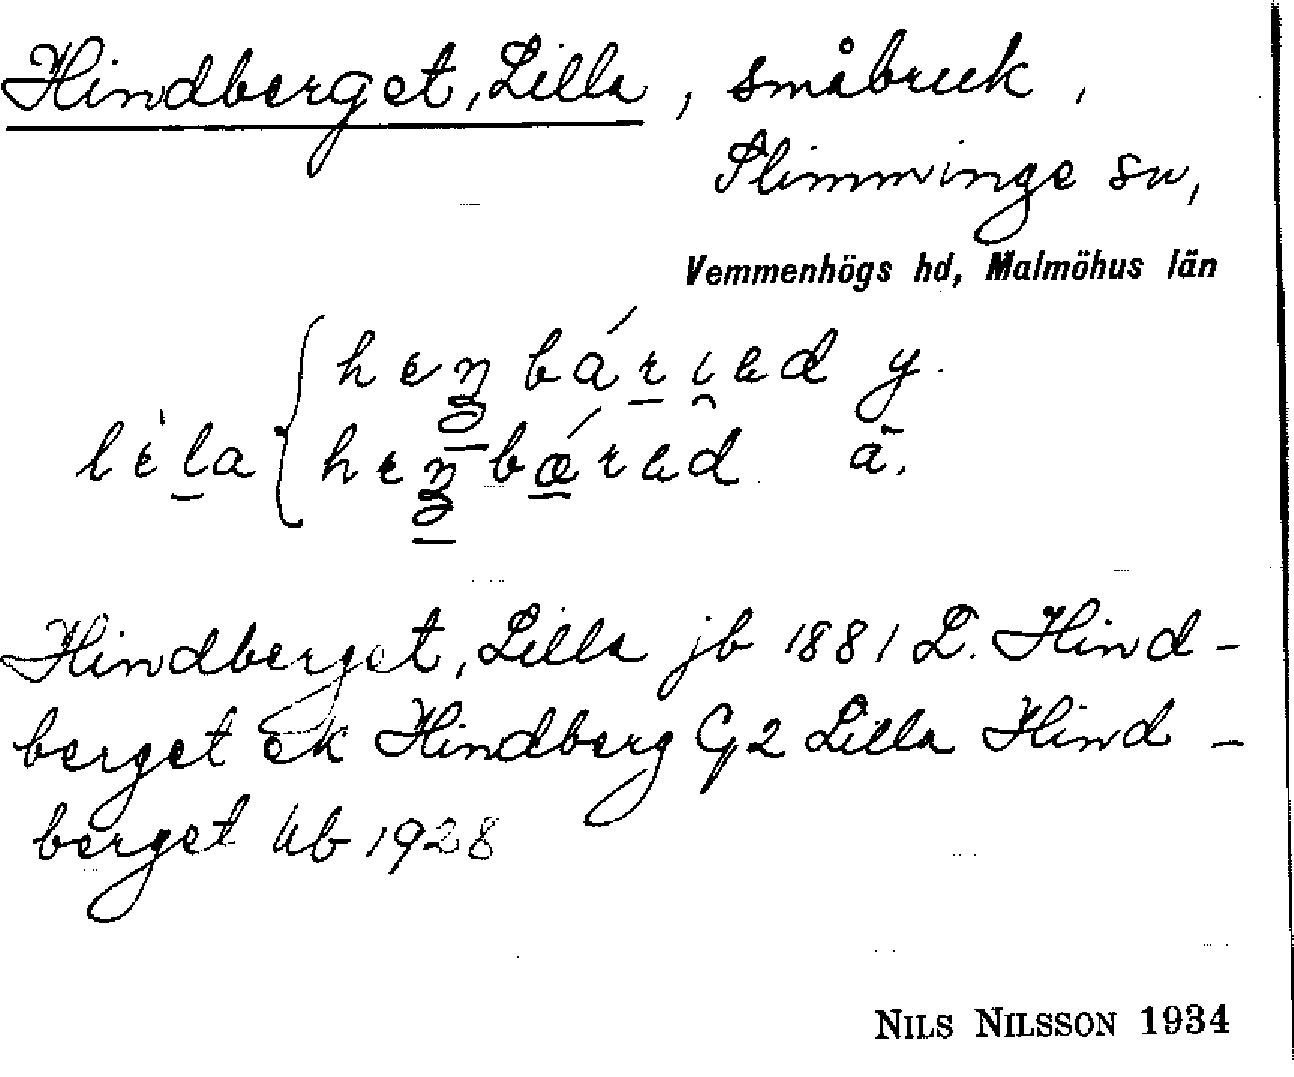 Hindberget, Lilla, småbruk,
Slimminge sn,
Vemmenhögs hd, Malmöhus län
Hindberget, Lilla jb 1881 L. Hind-
berget ek Hindberg G2 Lilla Hind-
berget Ub 1928
NILS NILSSON 1934